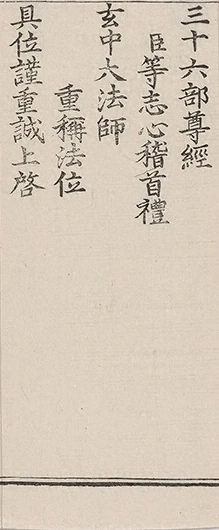 三十六部尊經
臣等志心稽首禮
玄中大法師
重稱法位
具位謹重誠上啓